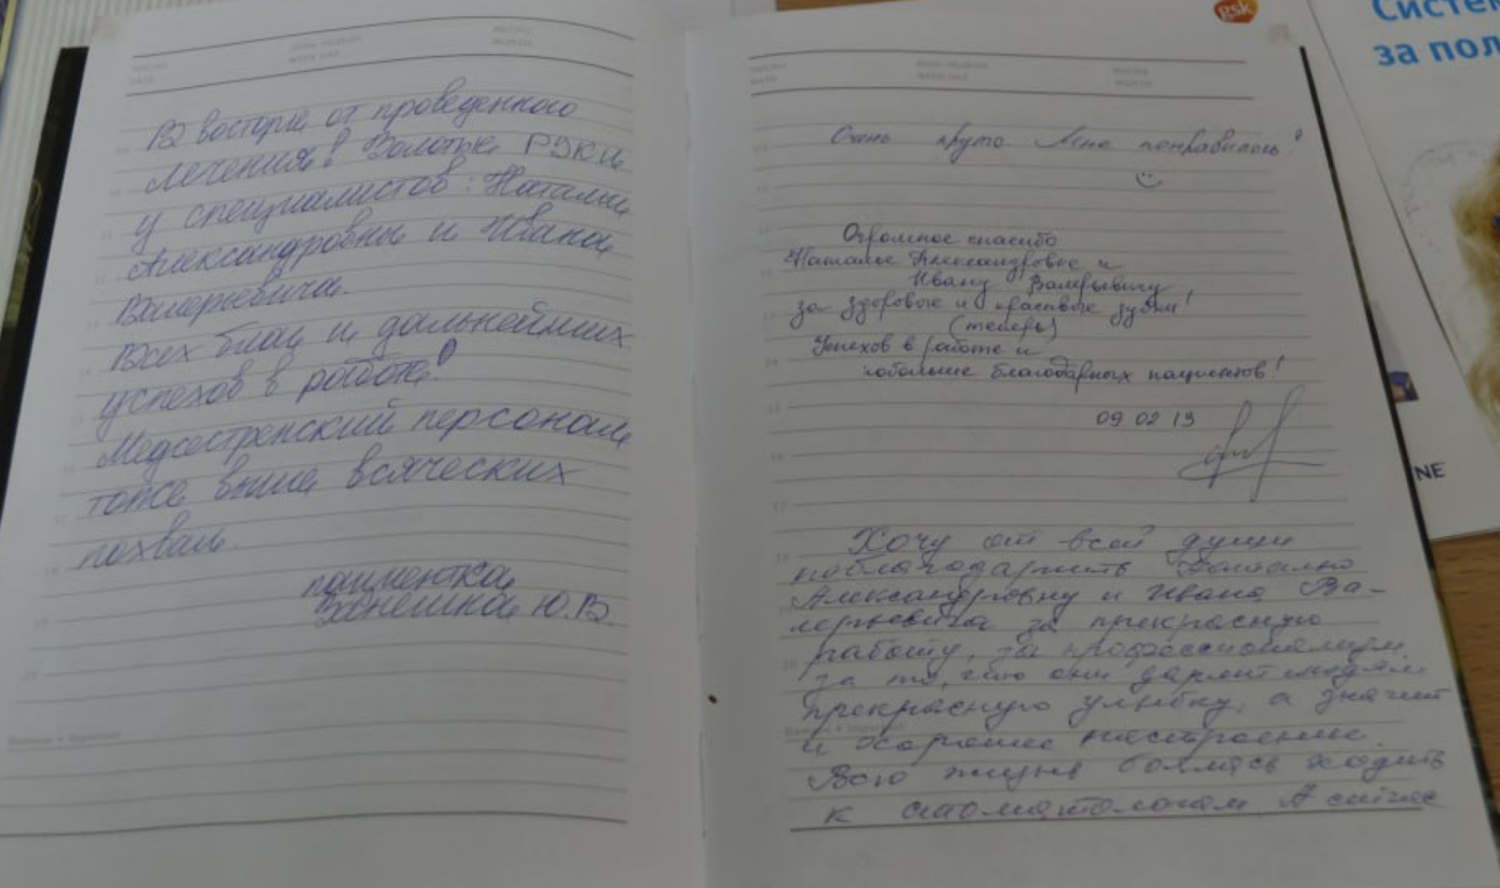 В восторге от проведенного
лечения! Золотые РУКИ
у специалистов: Натальи
Александровны и Ивана
Валерьевича.
Всех благ и дальнейших
успехов в работе!
Медсестренский персонал
тоже выше всяческих
похвал.
пациентка
Ю.В.
gsk
Очень круто. Мне понравилось!
Огромное спасибо
Наталье Александровне и
Ивану Валерьевичу
за здоровые и красивые зубки!
(теперь)
Успехов в работе и
побольше благодарных пациентов!
09 02 13
Хочу от всей души
поблагодарить Наталью
Александровну и Ивана Ва-
лерьевича за прекрасную
работу, за профессионализм,
за то, что они дарят людям
прекрасную улыбку, а значит
и хорошее настроение.
Всю жизнь боялась ходить
к стоматологам. А сейчас
Систем
за пол
NE